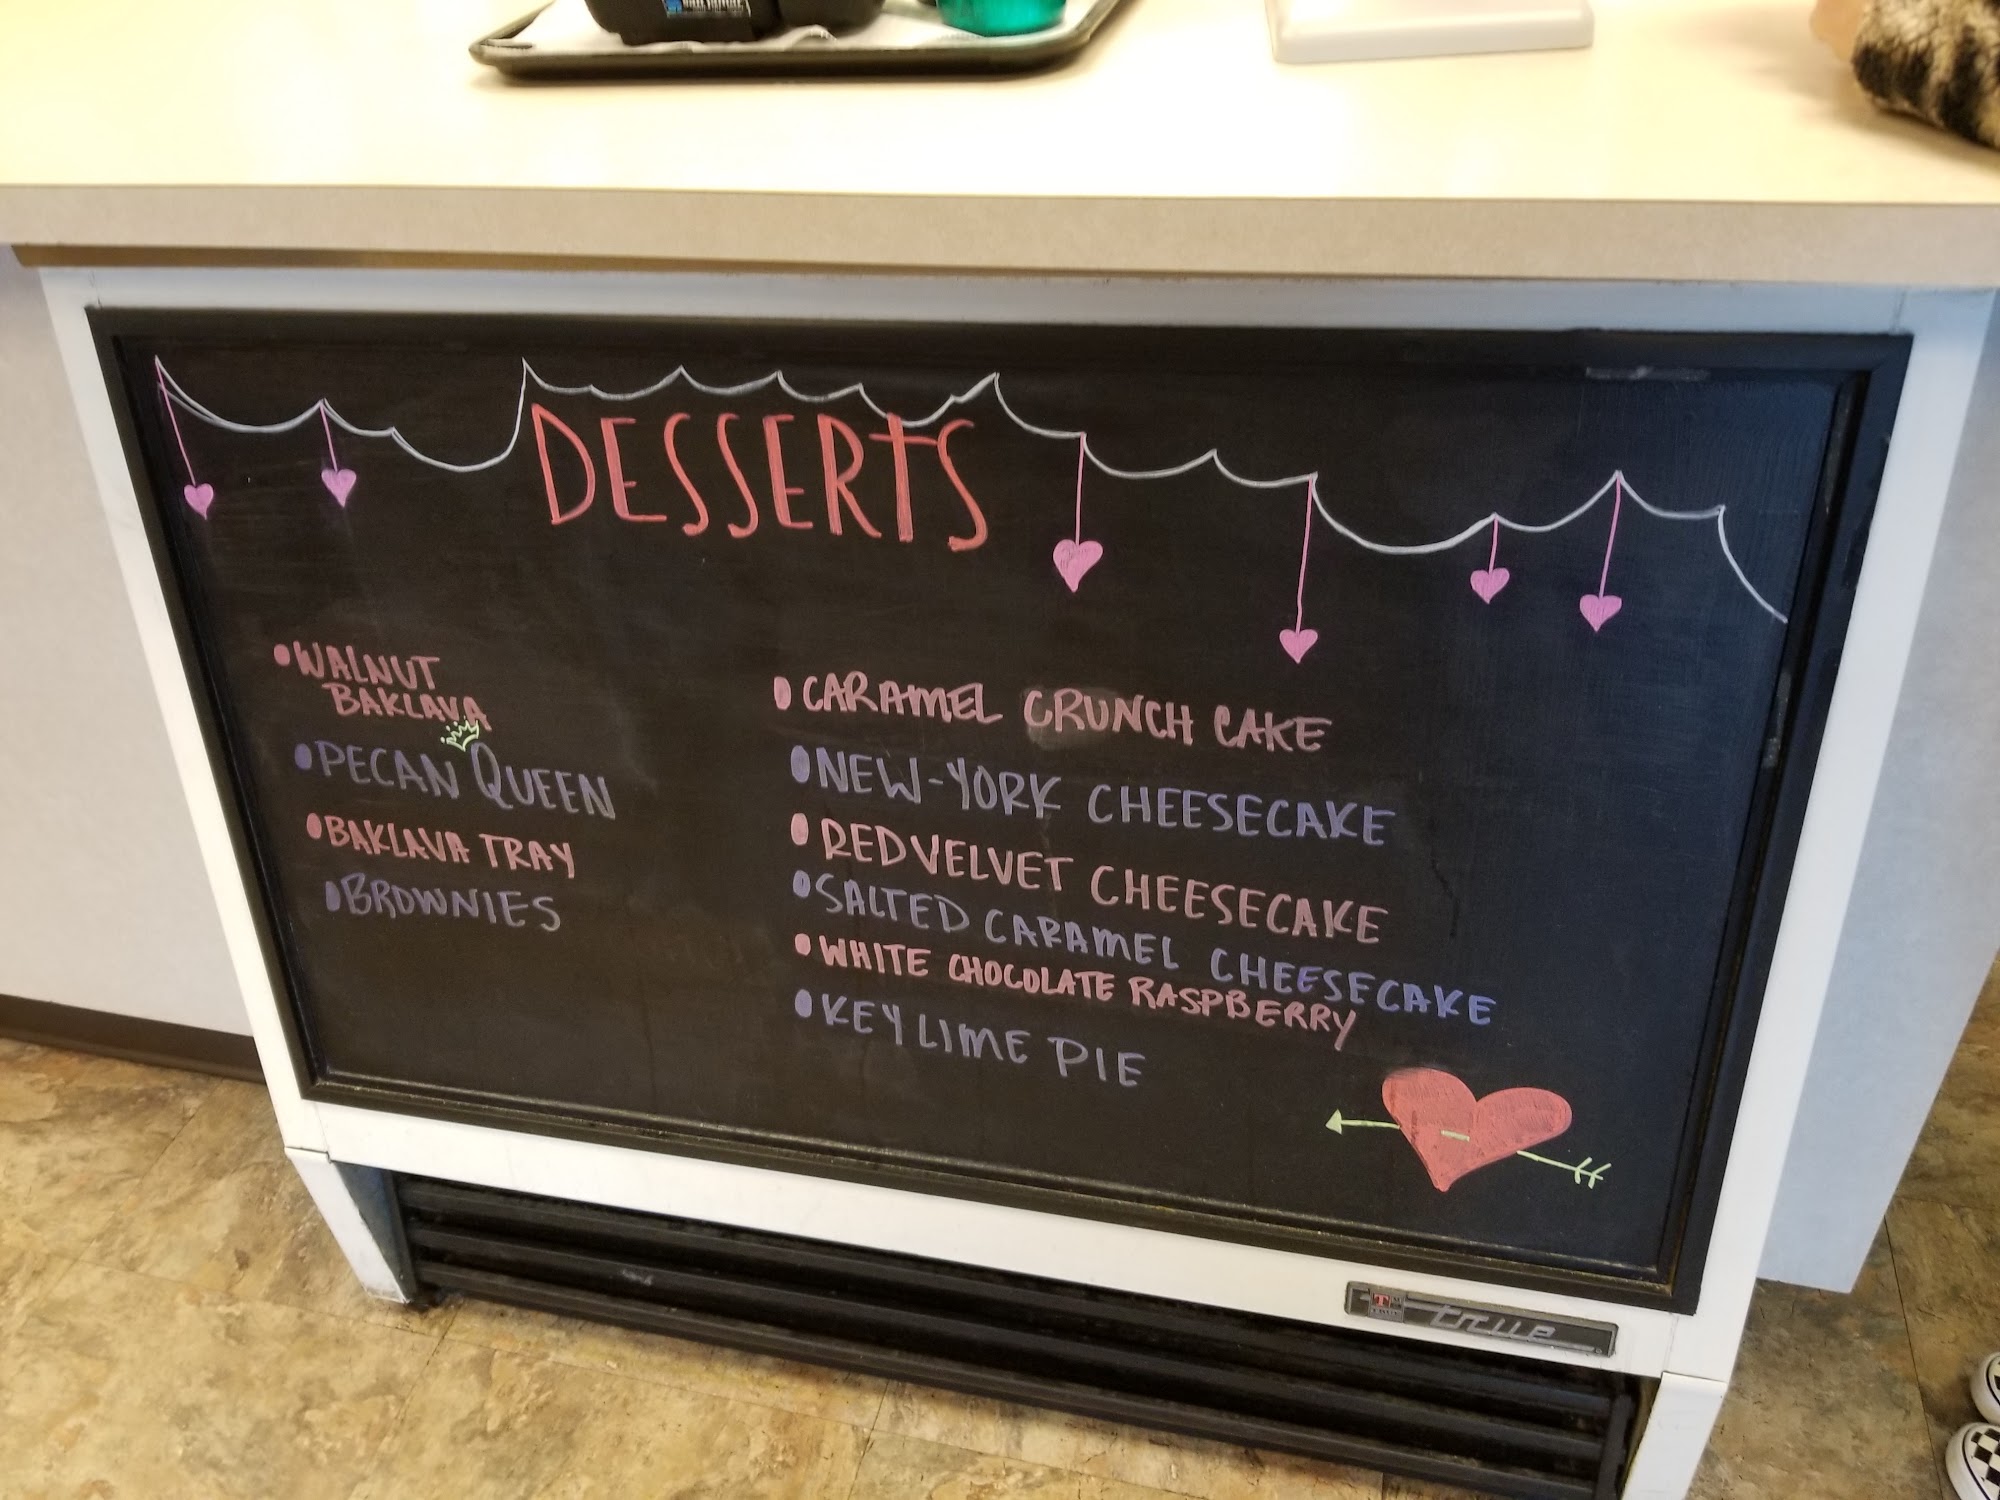 DESSERTS
•WALNUT
BAKLAVA
•PECAN QUEEN
•BAKLAVA TRAY
•BROWNIES
•CARAMEL CRUNCH CAKE
•NEW-YORK CHEESECAKE
•RED VELVET CHEESECAKE
•SALTED CARAMEL CHEESECAKE
•WHITE CHOCOLATE RASPBERRY
•KEY LIME PIE
true